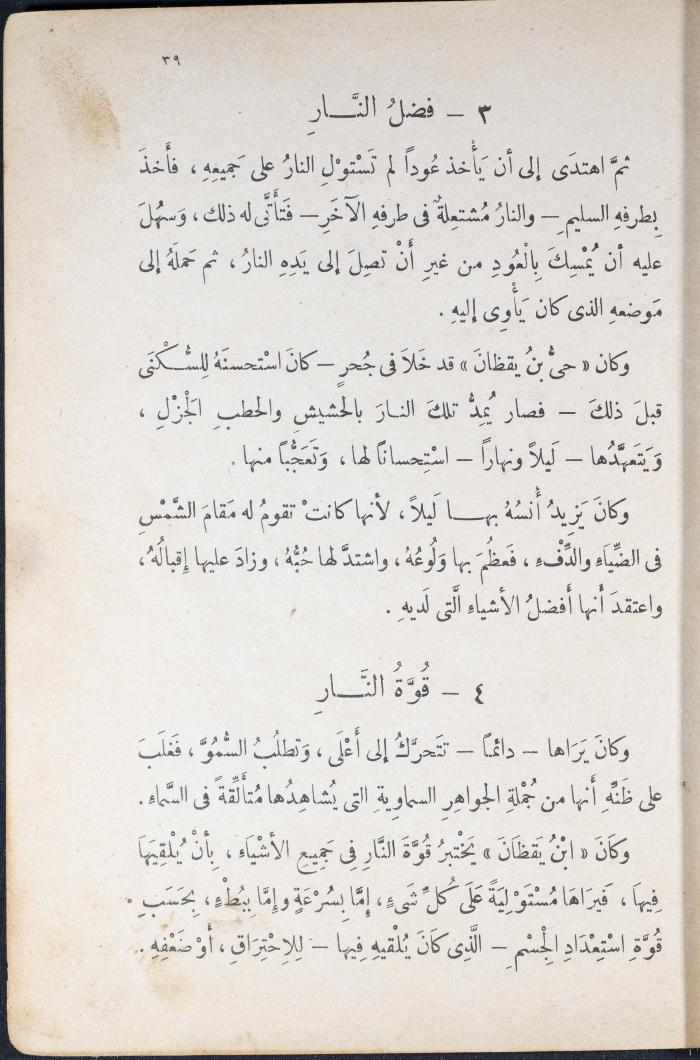 ٣٩
٣ – فضلُ النَّـــارِ
ثمَّ اهتدَى إلى أن يَأْخذ عُوداً لم تَسْتولِ النارُ على جَميعِهِ ، فأَخذَ
بِطرفهِ السليمِ – والنارُ مُشتعِلةٌ فى طرفهِ الآخَرِ – فَتأَتَّى له ذلك ، وَسهُلَ
عليه أن يُمْسِكَ بِالْعُودِ من غيرِ أَنْ تصِلَ إلى يَدِهِ النارُ ، ثم حَملَهُ إلى
مَوضعهِ الذى كان يَأْوِى إليهِ .
وكان « حىُّ بنُ يقظانَ » قد خَلاَ فى جُحرٍ – كانَ اسْتحسنَهُ لِلسُّــكْنَى
قبلَ ذلكَ – فصار يُمِدُّ تلكَ النـارَ بالحشيشِ والحطبِ الجَزْلِ ،
وَيَتَعهَّدُها – لَيلاً ونهاراً – اسْتِحساناً لها ، وَتَعَجُّباً منها .
وكانَ يَزِيدُ أُنسُهُ بهـــا لَيلاً ، لأنها كانتْ تقومُ له مَقامَ الشَّمْسِ
فى الضِّيَاءِ والدِّفْءِ ، فَعظُمَ بها وَلُوعُهُ ، واشتدَّ لها حُبُّهُ ، وزادَ عليها إقبالُهُ ،
واعتقدَ أَنها أَفضلُ الأشياءِ الَّتى لَديهِ .
٤ – قُوَّةُ النَّـــارِ
وكانَ يَرَاها – دائمـاً – تتَحرَّكُ إلى أَعْلَى ، وَتطلُبُ السُّمُوَّ ، فَغلَبَ
على ظَنِّهِ أَنها من جُمْلةِ الجواهرِ السماويةِ التى يُشاهِدُها مُتأَلِّقةً فى السَّماءِ .
وكَانَ « ابْنُ يَقظَانَ » يَخْتبرُ قُوَّةَ النَّارِ فِى جَمِيعِ الأشْيَاءِ ، بِأنْ يُلْقِيَهَا
فِيهَا ، فَيرَاهَا مُسْتَوْلِيَةً عَلَى كُلِّ شَىْءٍ ، إمَّا بِسُرْعَةٍ وإمَّا بِبُطْءٍ ، بِحَسَبِ
قُوَّةِ اسْتِعْدَادِ الْجِسْمِ – الَّذِى كَانَ يُلْقيهِ فِيهَا – لِلِاحْتِرَاقِ ، أَوْ ضَعْفِهِ ..